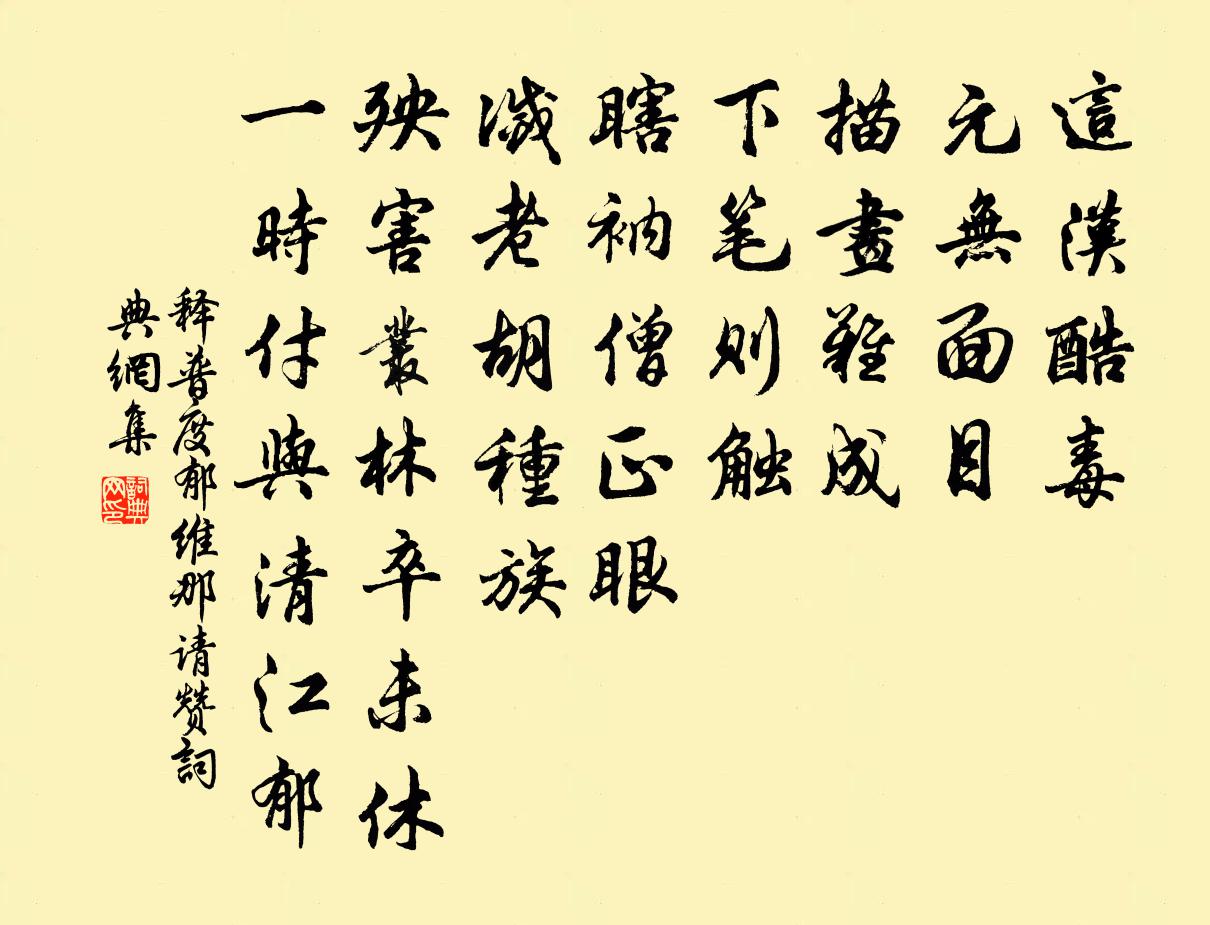 這漢酷毒
元無面目
描畫難成
下笔则触
瞎衲僧正眼
滅老胡種族
殃害叢林卒未休
一時付與清江郁
释普度郁维那请赞詞
典網集
詞典网印